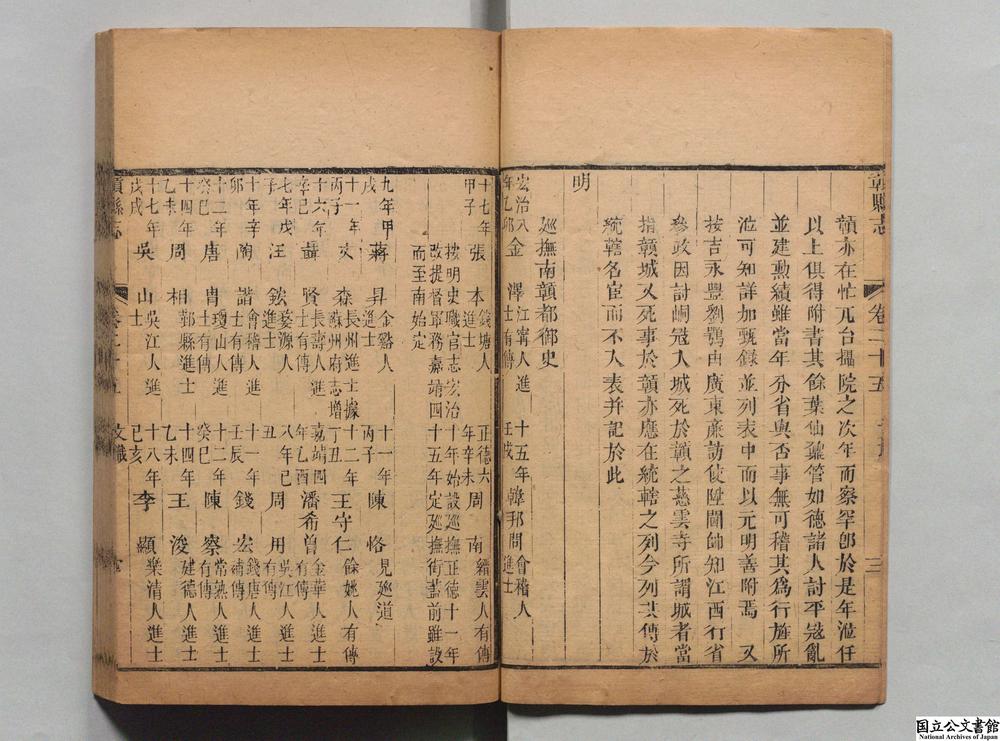 贛縣志 卷二十五 三
贛亦在忙兀台攝院之次年而察罕卽於是年涖任
以上俱得附書其餘葉仙鼐管如德諸人討平寇亂
並建勲績雖當年分省與否事無可稽其爲行旌所
涖可知詳加甄録並列表中而以元明善附焉 又
按吉永豐劉鶚由廣東廉訪使陞閫帥知江西行省
叅政因討峒冦入城死於贛之慈雲寺所謂城者當
指贛城又死事於贛亦應在統轄之列今列其傳於
統轄名宦而不入表并記於此
明
廵撫南贛都御史
宏治八年乙卯 金澤 江寧人進士有傳 十五年壬戌 韓邦問 會稽人進士
十七年甲子 張本 錢塘人進士 正德六年辛未 周南 縉雲人有傳
按明史職官志宏治十年始設廵撫正德十一年
改提督軍務嘉靖四十五年定廵撫銜葢前雖設
而至南始定
九年甲戌 蔣昇 進士 十一年丙子 陳恪 見廵道
十一年丙子 文森 長州進士據蘇州府志增 十二年丁丑 王守仁 餘姚人有傳
十六年辛巳 聶賢 長壽人進士有傳 嘉靖四年乙酉 潘希曽 金華人進士有傳
七年戊子 汪鋐 婺源人進士 八年己丑 周用 吳江人進士有傳
十年辛卯 陶諧 會稽人進士有傳 十一年壬辰 錢宏 錢唐人進士
十二年癸巳 唐冑 瓊山人進士有傳 十二年癸巳 陳察 常熟人進士有傳
十四年乙未 周相 鄞縣進士 十四年乙未 王浚 建德人進士
十七年戊戌 吳山 吳江人進士 十八年己亥 李顯 樂清人進士
贛縣志 卷二十五 文職
国立公文書館
National Archives of Japan